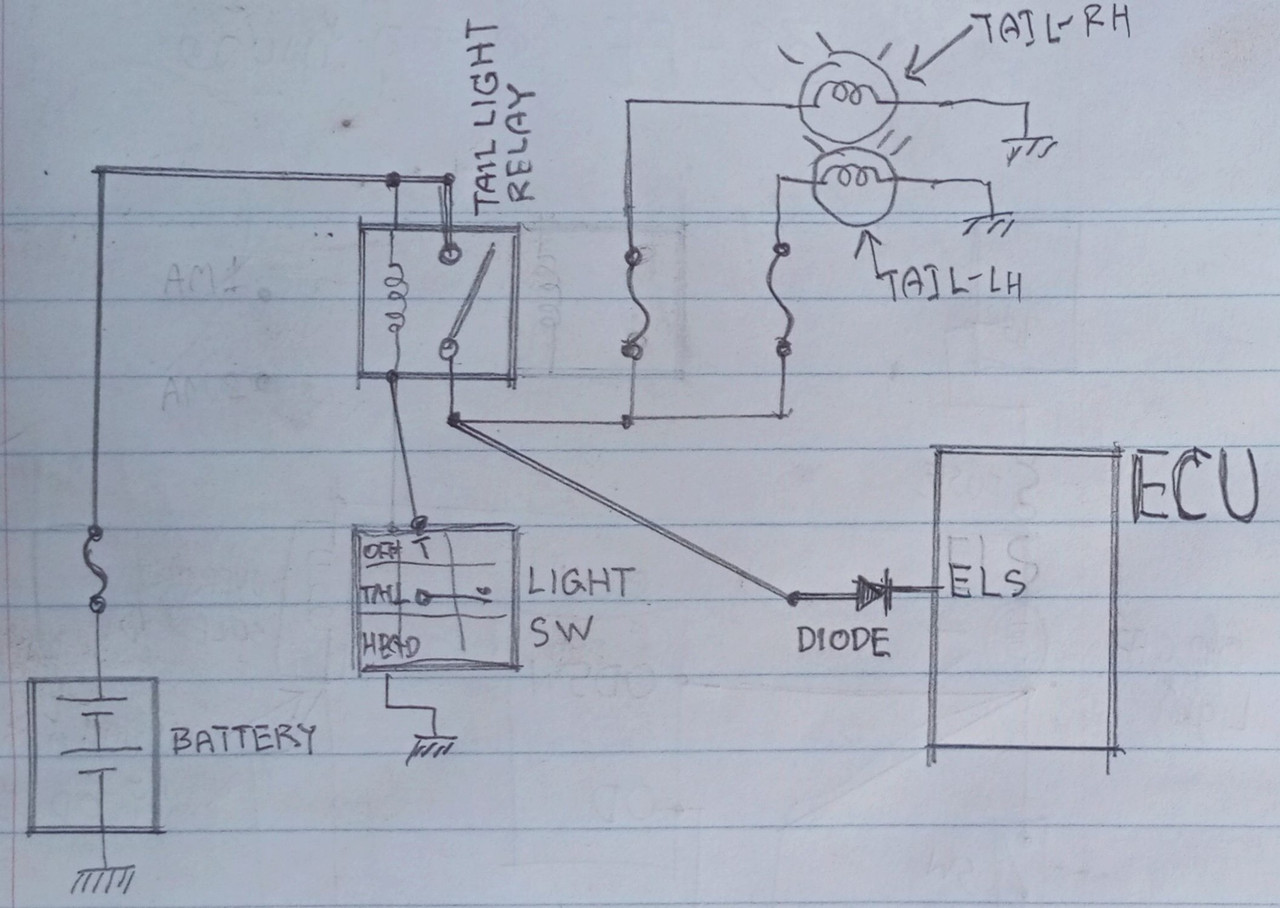 TAIL-RH
TAIL LIGHT
RELAY
TAIL-LH
ECU
OFF T
TAIL
HEAD
LIGHT
SW
ELS
DIODE
BATTERY